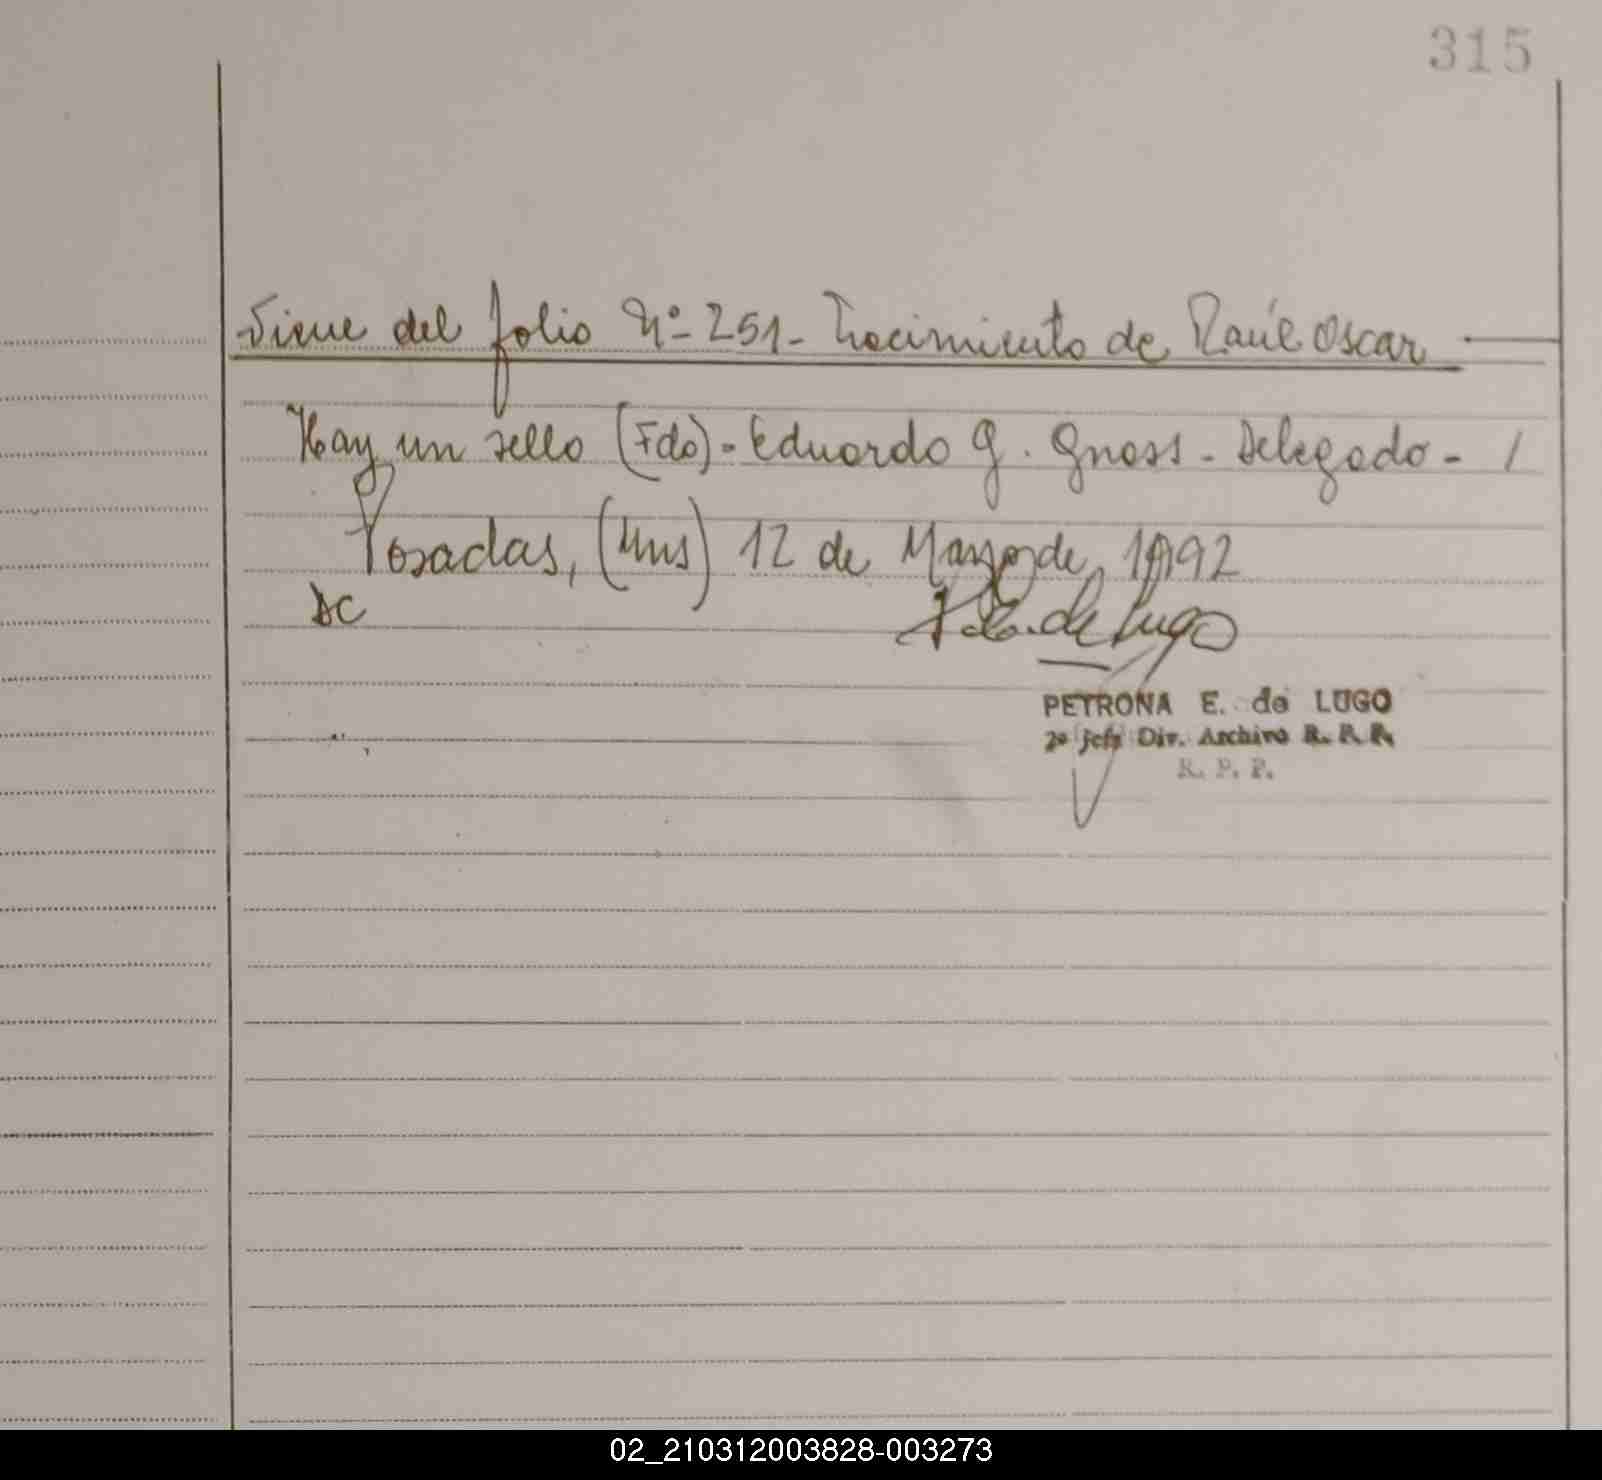 315
Viene del folio Nº 251 - Nacimiento de Raúl Oscar
Hay un sello (Fdo) - Eduardo G. Gnass - Delegado - /
Posadas, (Mns) 12 de Mayo de 1992
DC
de Lugo
PETRONA E. de LUGO
2º Jefe Div. Archivo R. P. P.
R. P. P.
02_210312003828-003273